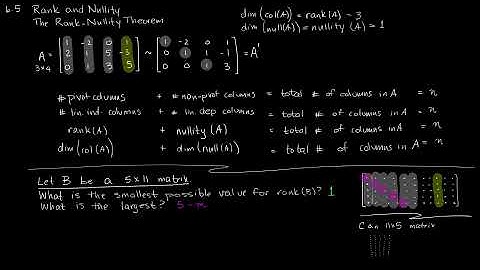 6.5 Rank and Nullity
The Rank-Nullity Theorem
dim(col(A)) = rank(A) = 3
dim(null(A)) = nullity(A) = 1
A = [1 -2 0 1
2 1 5 -3
0 1 3 5] ~ [1 -2 0
0 1 1 -1
0 0 1 3] = A'
3x4
# pivot columns + # non-pivot columns = total # of columns in A = n
# lin. ind. columns + # lin. dep columns = total # of columns in A = n
rank(A) + nullity(A) = total # of columns in A = n
dim(col(A)) + dim(null(A)) = total # of columns in A = n
Let B be a 5x11 matrix.
What is the smallest possible value for rank(B)? 1
What is the largest? 5
C an 11x5 matrix